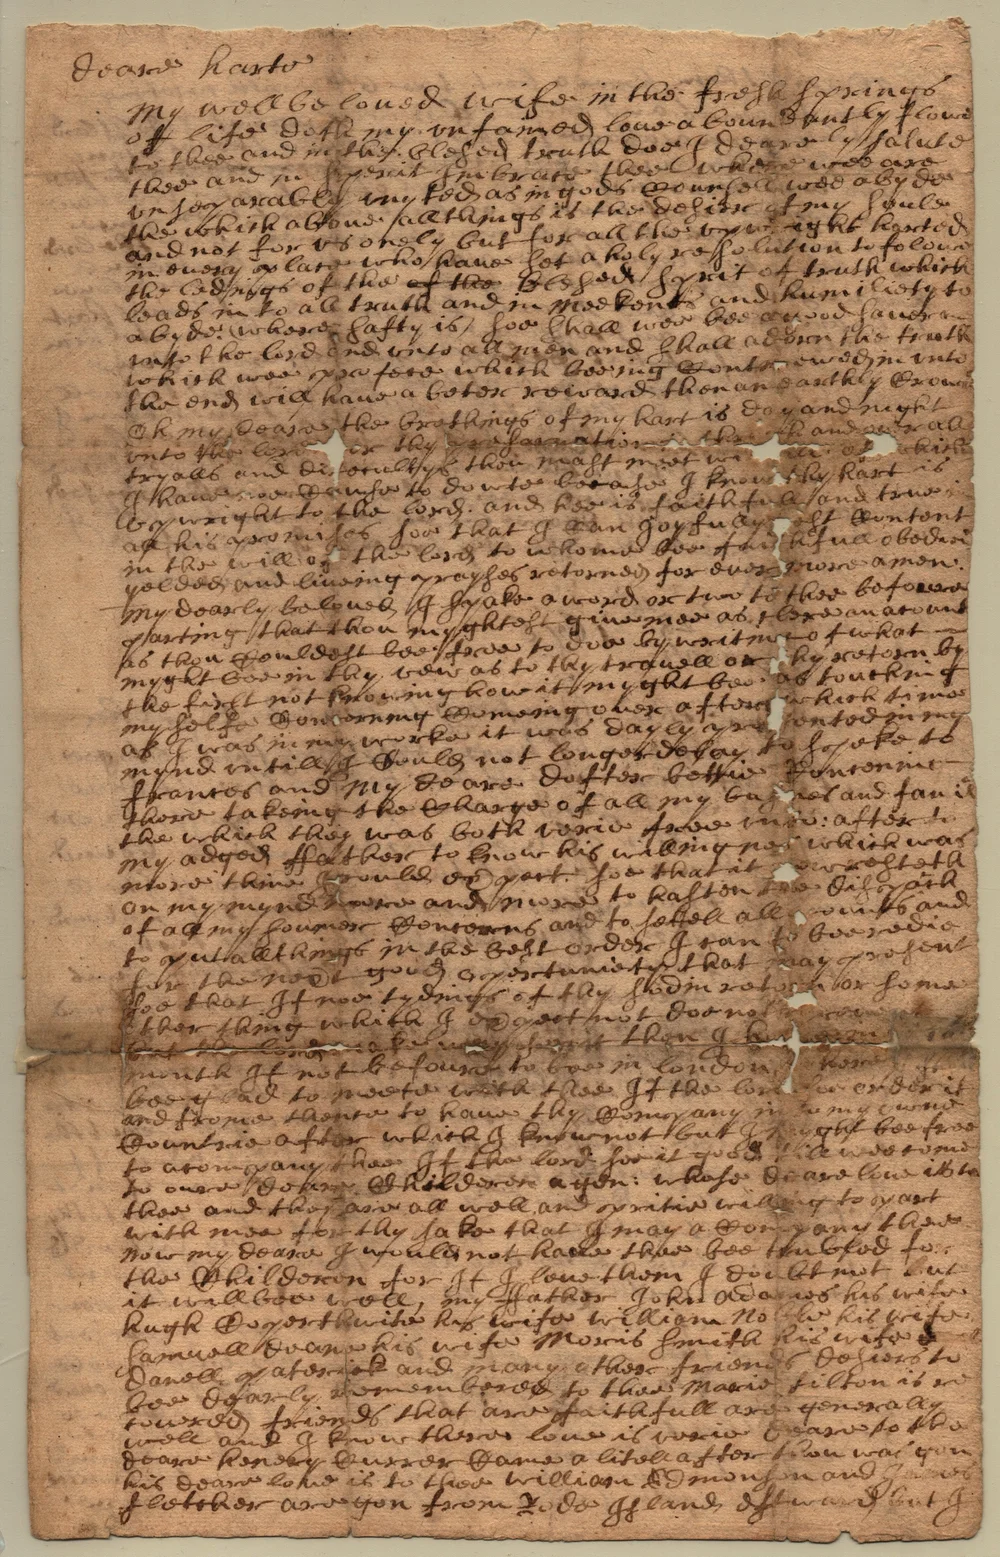 deare harte
My well beloved wife in the fresh springs
of life doth my unfained love aboundantly flowe
to thee and in the blesed truth doe I dearely salute
thee and in sperit imbrace thee where wee are
unseparably unyted as in gods Counsell wee abyde
the which above all things is the desier of my soule
and not for us onely but for all the upwright harted
in every place who have set a holy resolution to folowe
the ledings of the of the Blesed sperit of truth which
leads in to all truth and in meekenes and humiliety to
abyde where safty is soe shall wee bee a good savor
unto the lord and unto all men and shall adorn the truth
which wee profese which beeing Contenewed in unto
the end will have a beter reward then an earthly Crown
Oh my deare the brethings of my hart is day and night
unto the lord for thy preservation in the and over all
tryalls and dificultys thou maist meet with which
I have noe Cause to dowte because I know thy hart is
upwright to the lord. and hee is faithfull and true in
all his promises soe that I Can Joyfully rest Content
in the will of the lord to whome bee faithfull obedience
yelded and liveing prayses returned for ever more amen.
My dearly beloved I spake a word or two to thee before
parting that thou myghtest give mee as clere an acount
as thou Couldest bee free to doe by writing of what
myght bee in thy view as to thy travell or thy return by
the first not knowing how it myght bee as touching
my selfe Concerning Comeing over after which time
as I was in my worke it was dayly presented in my
mynd untill I Could not longer delay to speke to
frances and my deare dofter bettie Concerning
there takeing the Charge of all my busines and family
the which they was both verie free unto: after to
my adged ffather to know his willingnes which was
more then I could expect. soe that it resteth
on my mynd more and more to hasten the dispatch
of all my Concerns and to settell all acounts and
to put all things in the best order I can to bee redie
for the next good opertuniety that may present
soe that If noe tydings of thy return or some
other thing which I expect not doe not prevent
but the lord make way I then I
month If not before to bee in london where I
bee glad to meete with thee If the lord soe order it
and frome thence to have thy Company in to my owne
Countrie after which I know not but I myght bee free
to acompany thee If the lord see it good till wee come
to oure deare Childeren agen: whose deare love is to
thee and they are all well and pritie willing to part
with mee for thy sake that I may acompany thee
Now my deare I would not have thee bee trubled for
the Childeren for If I leve them I doubt not but
it will bee well, my ffather John adames his wife
hugh Copperthwite his wife william Noble his wife
samuell deane his wife Moris smith his wife
Daniell paterick and many other friends desiers to
bee dearly remembered to thee Marie tilton is re
covered friends that are faithfull are generally
well and I know there love is verie deare to thee
deare henery Currer Came a litell after thou was gon
his deare love is to thee william Edmonson and James
fletcher are gon from Rode Island estward but I